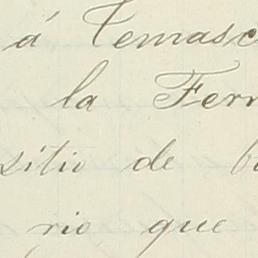 á Temasc
la Ferr
sitio de b
rio que